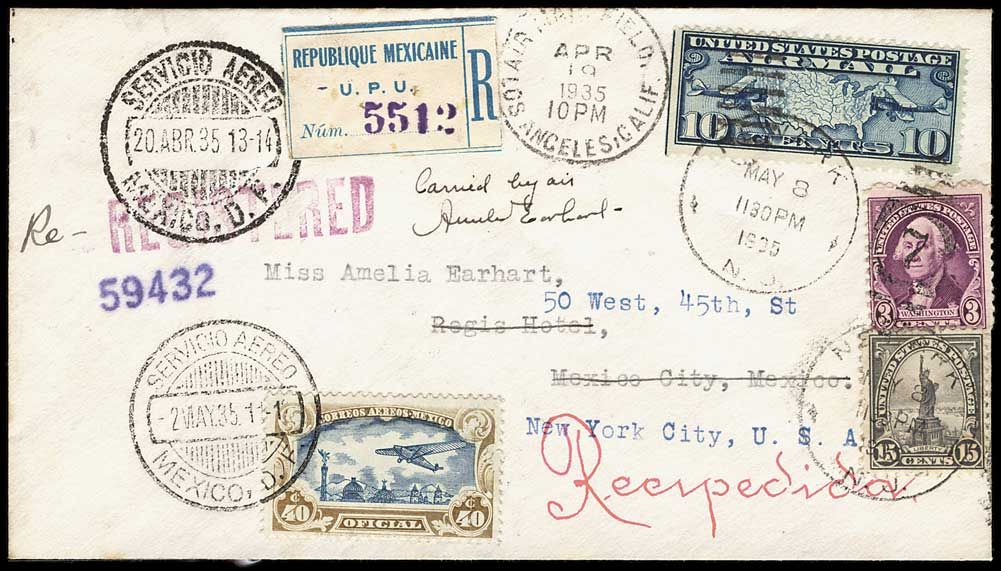 SERVICIO AEREO
20.ABR.35 13-14
MEXICO, D. F.
REPUBLIQUE MEXICAINE
U. P. U.
Núm. 5512
R
APR
19
1935
10 PM
ANGELES, CALIF
UNITED STATES POSTAGE
AIR MAIL
10 CENTS 10
MAY 8
1130 PM
1935
N. J.
Re-
REGISTERED
Carried by air
Amelia Earhart
59432
Miss Amelia Earhart,
50 West, 45th, St
Regis Hotel,
Mexico City, Mexico.
New York City, U. S. A
Reexpedida.
UNITED STATES POSTAGE
3 WASHINGTON 3
CENTS
UNITED STATES POSTAGE
LIBERTY
15 CENTS 15
8
N. J.
SERVICIO AEREO
-2 MAY.35. 13-1
MEXICO, D. F.
CORREOS AEREOS-MEXICO
40 ¢ OFICIAL 40 ¢